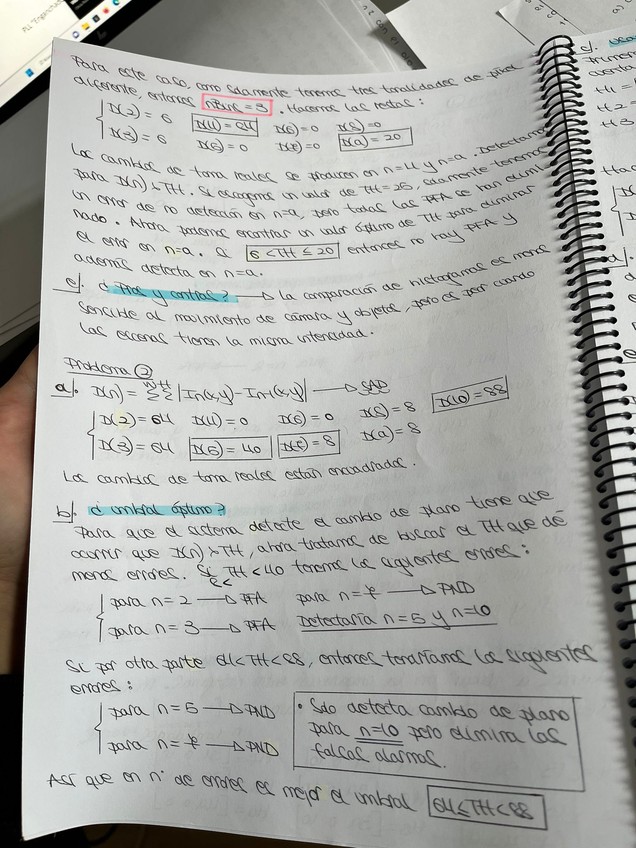 Para este caso, como solamente tenemos tres tonalidades de píxel
diferente, entonces nBins = 3. Hacemos las restas:
D(2) = 6 D(4) = 64 D(6) = 0 D(8) = 0
D(3) = 6 D(5) = 0 D(7) = 0 D(9) = 20
Los cambios de toma reales se producen en n=4 y n=9. Detectamos
para D(n) > TH. Si escogemos un valor de TH = 25, solamente tenemos
un error de no detección en n=9, pero todas las PFA se han elimi
nado. Ahora podemos encontrar un valor óptimo de TH para eliminar
el error en n=9. Si 6 < TH ≤ 20 entonces no hay PFA y
además detecta en n=9.
e). ¿Pros y contras? → La comparación de histogramas es menos
sensible al movimiento de cámara y objetos, pero es peor cuando
las escenas tienen la misma intensidad.
Problema 2
a). D(n) = ΣΣ |In(x,y) - In-1(x,y)| → SAD
D(2) = 64 D(4) = 0 D(6) = 0 D(8) = 8 D(10) = 88
D(3) = 64 D(5) = 40 D(7) = 8 D(9) = 8
Los cambios de toma reales están encuadrados.
b). ¿Umbral óptimo?
Para que el sistema detecte el cambio de plano tiene que
ocurrir que D(n) > TH, ahora tratamos de buscar el TH que dé
menos errores. Si 8 < TH < 40 tenemos los siguientes errores:
para n = 2 → PFA para n = 7 → PND
para n = 3 → PFA Detectaría n=5 y n=10
Si por otra parte 64 < TH < 88, entonces tendríamos los siguientes
errores:
para n = 5 → PND
para n = 7 → PND
• Solo detecta cambio de plano
para n=10 pero elimina las
falsas alarmas.
Así que en nº de errores es mejor el umbral 64 ≤ TH < 88